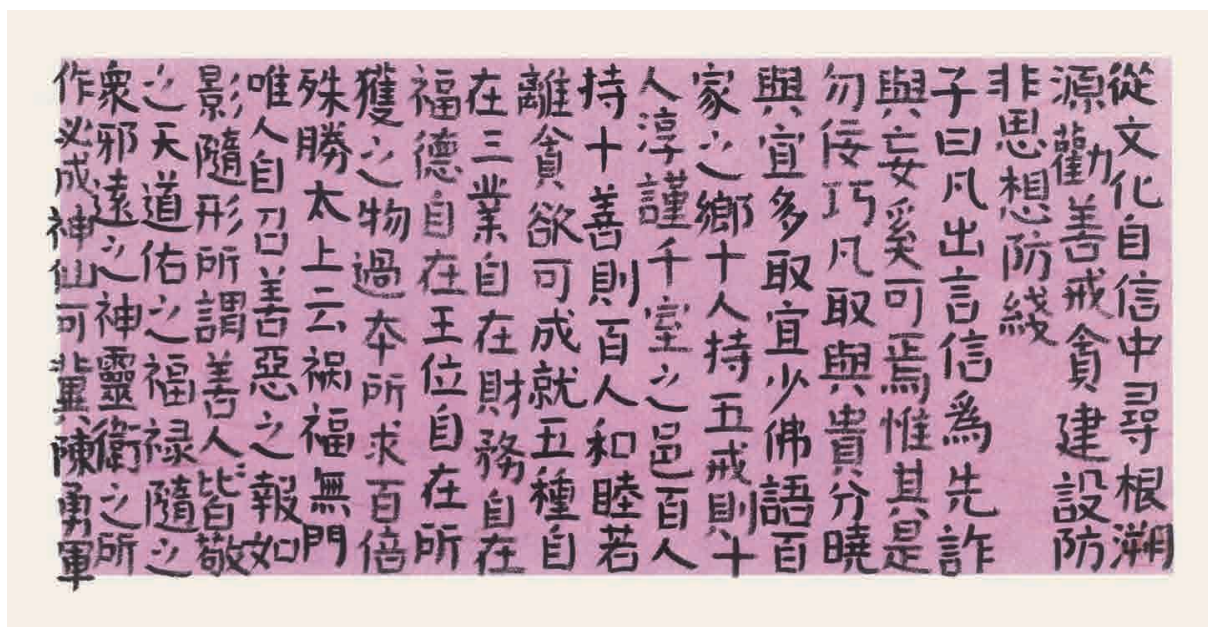 從文化自信中尋根溯
源勸善戒貪建設防
非思想防綫
子曰凡出言信爲先詐
與妄奚可焉惟其是
勿佞巧凡取與貴分曉
與宜多取宜少佛語百
家之鄉十人持五戒則十
人淳謹千室之邑百人
持十善則百人和睦若
離貪欲可成就五種自
在三業自在財務自在
福德自在王位自在所
獲之物過本所求百倍
殊勝太上云禍福無門
唯人自召善惡之報如
影隨形所謂善人皆敬
之天道佑之福禄隨之
衆邪遠之神靈衛之所
作必成神仙可冀陳勇軍